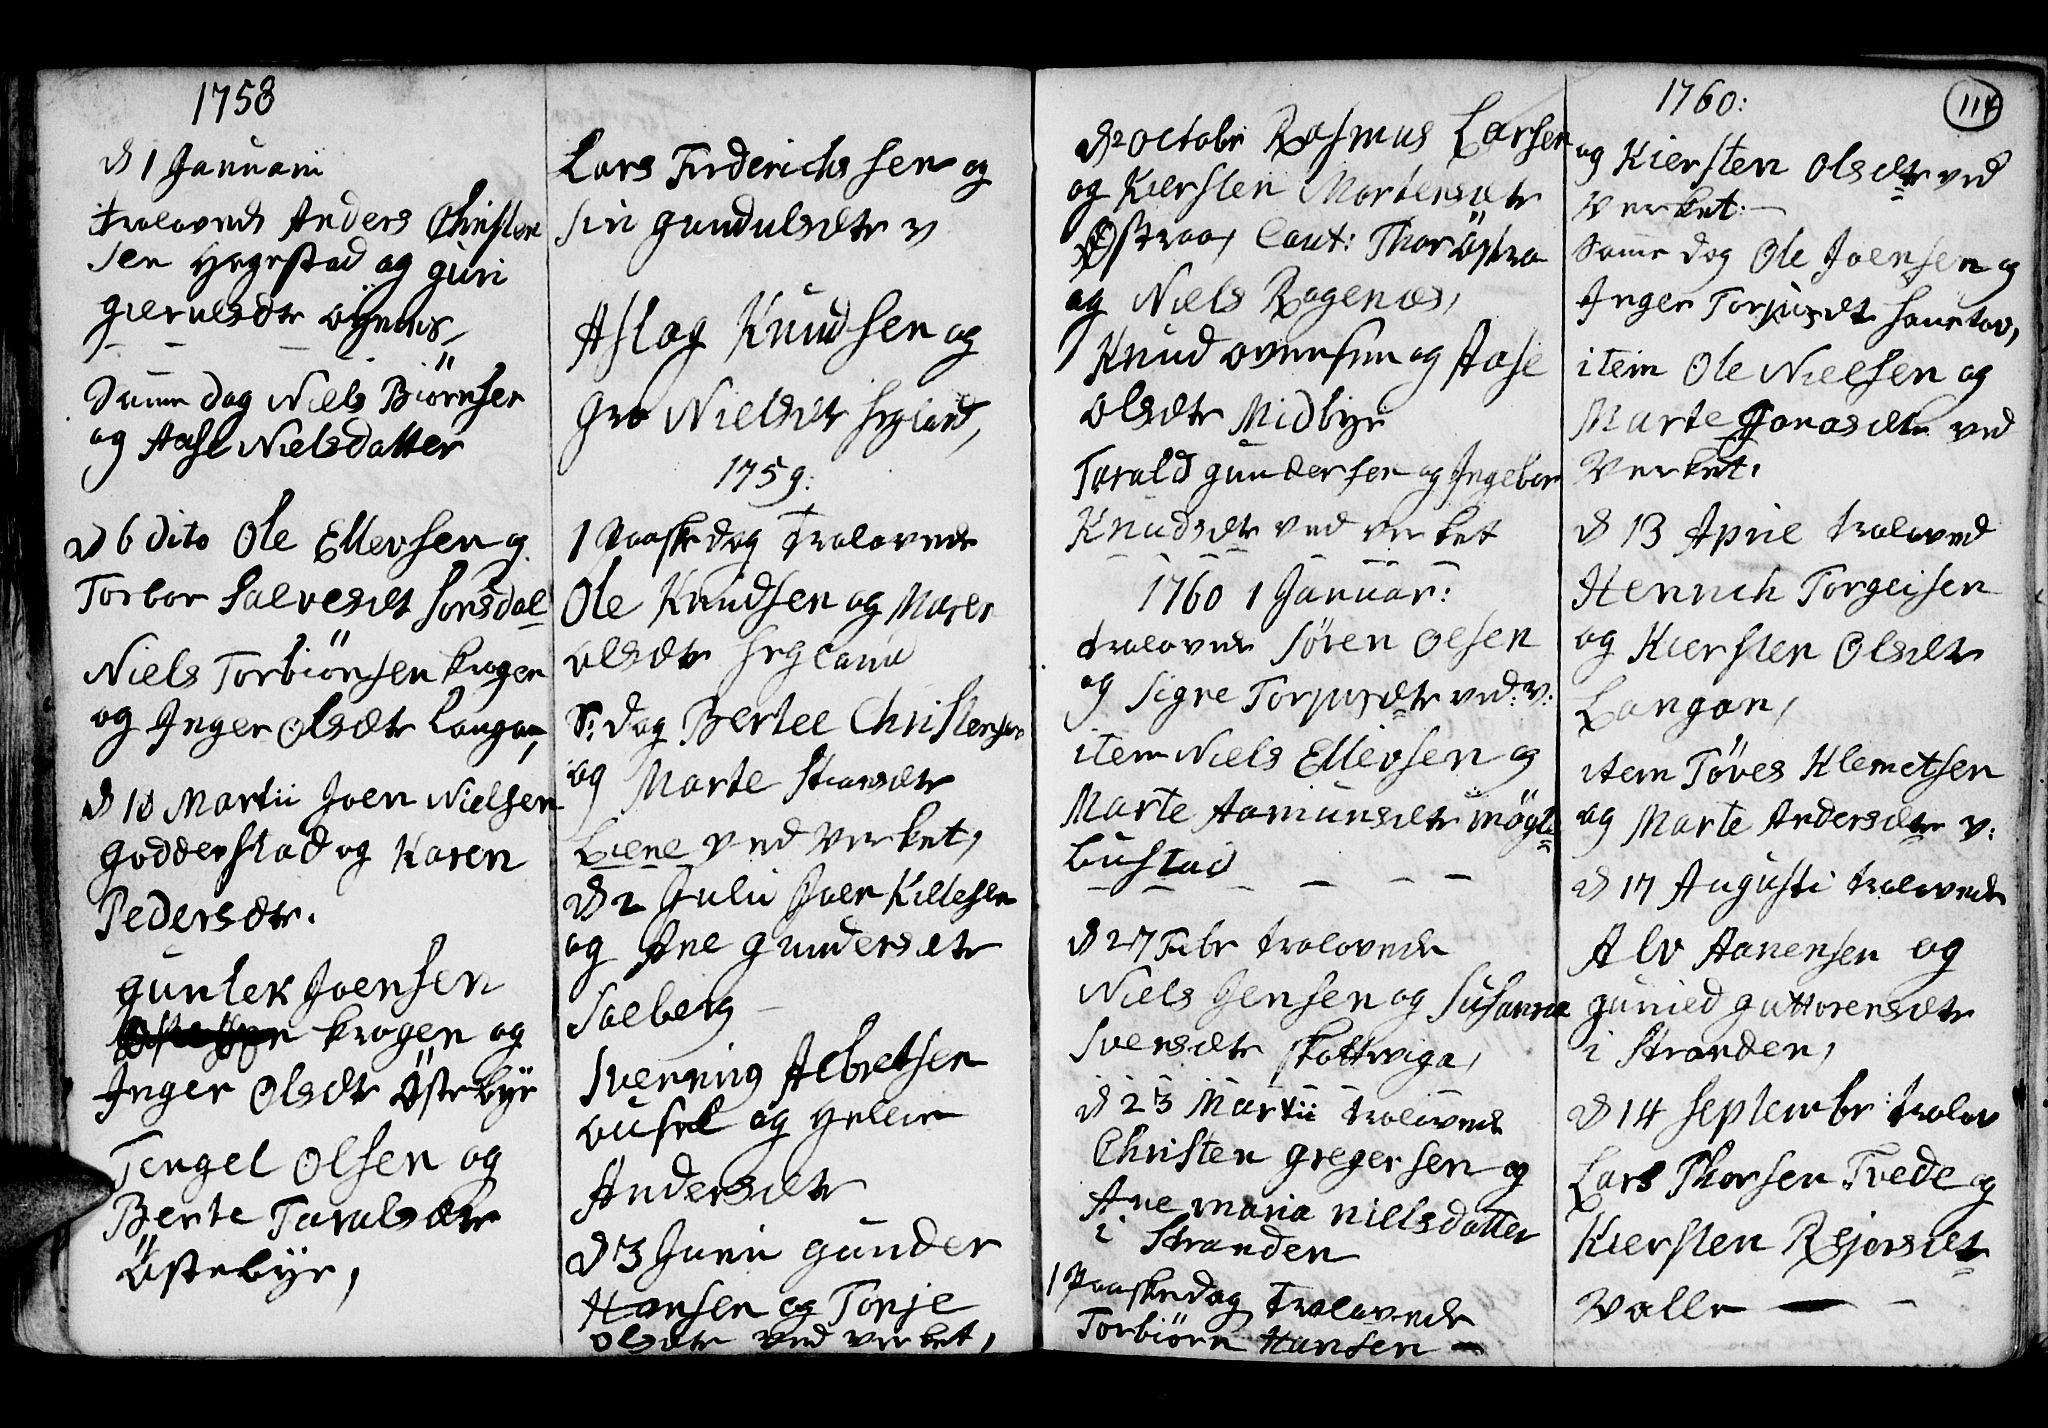 1758
d 1 Januarii
trolovede Anders Christen
sen Hegestad og Guri
Gierulsdtr Öynes,
Samme dag Niels Biörnsen
og Aase Nielsdatter
d 6 dito Ole Ellevsen og
Torbor Salvesdt Sonsdal
Niels Torbiörnsen krogen
og Inger Olsdtr Langan,
d 18 Martii Joen Nielsen
Godderstad og Karen
Pedersdtr.
Gunlek Joensen
krogen og
Inger Olsdtr Östebye
Tengel Olsen og
Berte Taralsdtr
Östebye,
Lars Frderichssen og
Siri Gundulsdtr v
Aslag Knudsen og
Gro Nielsdtr hegland,
1759:
1 Paaskedag trolovede
Ole Knudsen og Maren
Olsdtr hegland
S: dag Bertel Christensen
og Marte
Liene ved Verket,
d 2 Julii Joen Killesen
og Ane Gundersdtr
Solberg
Svenning Albretsen
og Hellie
Andersdtr
d 3 Junii Gunder
Hansen og Tonje
Olsdtr ved verket,
d 2 Octobr Rasmus Larsen
og Kiersten Mortensdtr
Östraa, Caut: Thor Östra
og Niels Ragenes,
Knud Ovensen og Aase
Olsdtr Midbye
Tarald Gundersen og Ingebor
Knudsdtr ved verket
1760 1 Januar:
trolovede Sören Olsen
og Signe Torjusdtr ved: v:
item Niels Ellevsen og
Marte Aamunsdtr Mögle
bustad
d 27 Febr trolovede
Niels Jensen og Susanna
Svensdtr skottwiga,
d 23 Martii trolovede
Christen Gregersen og
Ane Maria Nielsdatter
i Stranden
1 Paaskedag trolovede
Torbiörn Hansen
1760:
114
og Kiersten Olsdtr ved
Verket.
Samme dag Ole Joensen og
Inger Torjusdtr
item Ole Nielsen og
Marte Jonasdtr ved
Verket,
d 13 April troloved
Henrich Torgeisen
og Kiersten Olsdtr
Langan,
item Töves Klemetsen
og Marte Andersdtr v:
d 17 Augusti trolovede
Alv Aanensen og
Gunild Guttorensdtr
i Stranden,
d 14 Septembr: trolov
Lars Thorsen Tvede og
Kiersten Rejersdtr
Valle